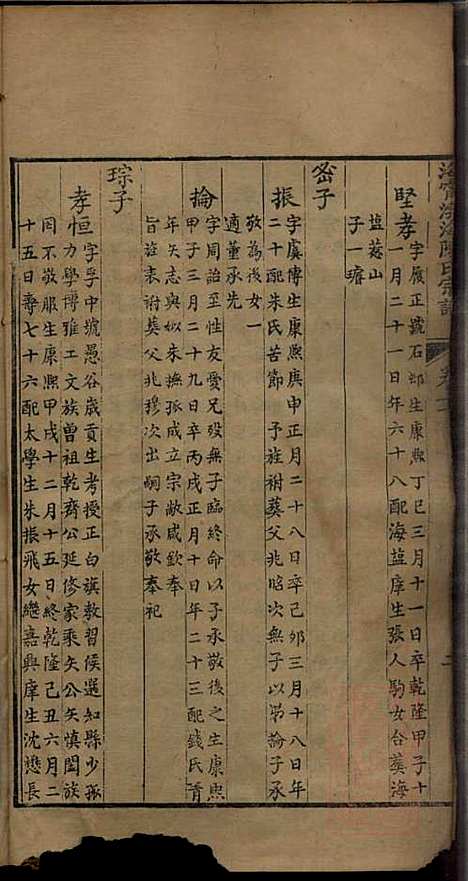 海寧渤海陳氏宗譜
堅孝
字履正號石邨生康熙丁巳三月十一日卒乾隆甲子十
一月二十一日年六十八配海盐庠生張人駒女合葬海
盐荵山
子一璿
密子
振
字虞傳生康熙庚申正月二十八日卒己卯三月十八日年
二十配朱氏苦節 予旌祔葬父兆昭次無子以弟論子承
敬為後女一
適董承先
掄
字周詒至性友愛兄歿無子臨終命以子承敬後之生康熙
甲子三月二十九日卒丙戌正月十日年二十三配錢氏青
年矢志與姒朱撫孤成立宗黨咸欽奉
旨旌表祔葬父兆穆次出嗣子承敬奉祀
琮子
孝恒
字孚中號愚谷歲貢生考授正白旗教習候選知縣少孤
力學博雅工文族曾祖乾齋公延修家乘矢公矢慎闔族
罔不敬服生康熙甲戌十二月十五日終乾隆己丑六月二
十五日壽七十六配太學生朱振飛女繼嘉興庠生沈懋長